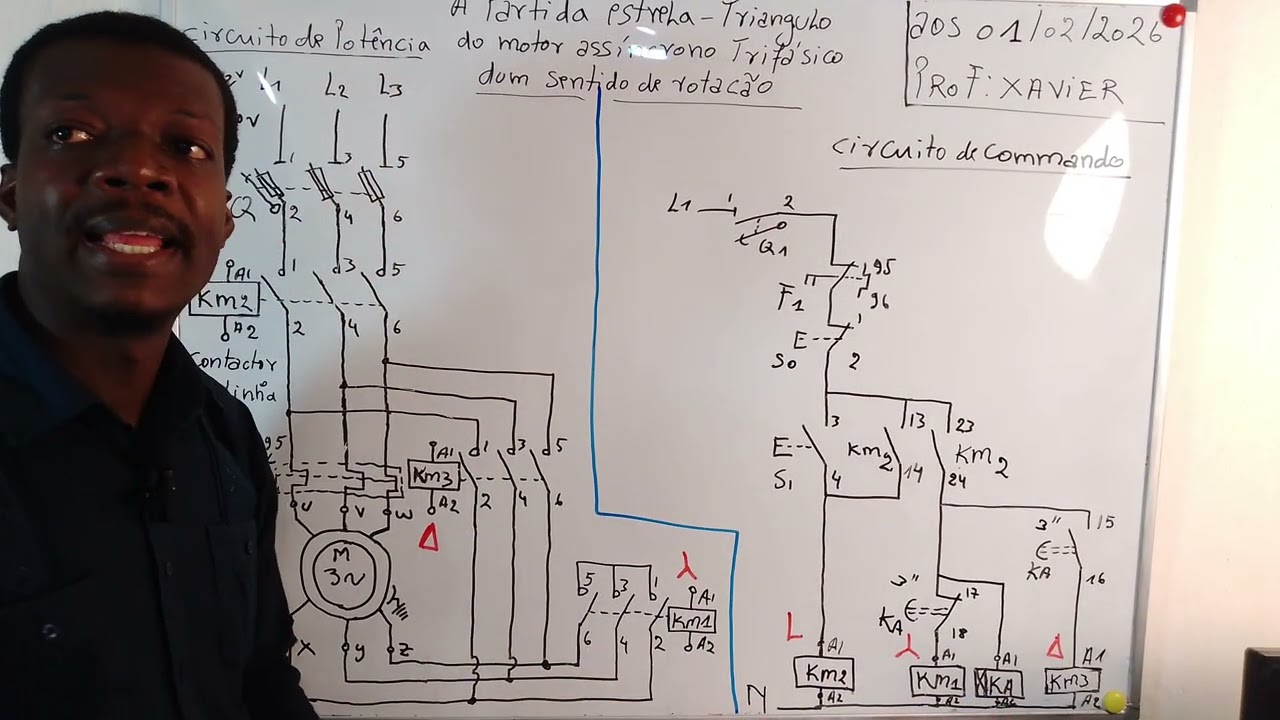 A Partida estrela-Triangulo
do motor assíncrono Trifásico
dum sentido de rotação
aos 01/02/2026
PROF: XAVIER
Circuito de Potência
L1 L2 L3
1 3 5
Q 2 4 6
A1 1 3 5
Km2
A2 2 4 6
Contactor
95
1 3 5
A1
Km3
A2 2 4 6
Δ
U V W
M
3~
X Y Z
5 3 1
6 4 2
A1
Km1
A2
circuito de Commando
L1 1 2
Q1
F1 95
96
E 1
S0 2
3 13 23
E Km2 Km2
S1 4 14 24
3" 15
KA 16
3" 17
KA 18
L A1 A1 A1 Δ A1
Km2 Km1 KA Km3
A2 A2 A2 A2
N